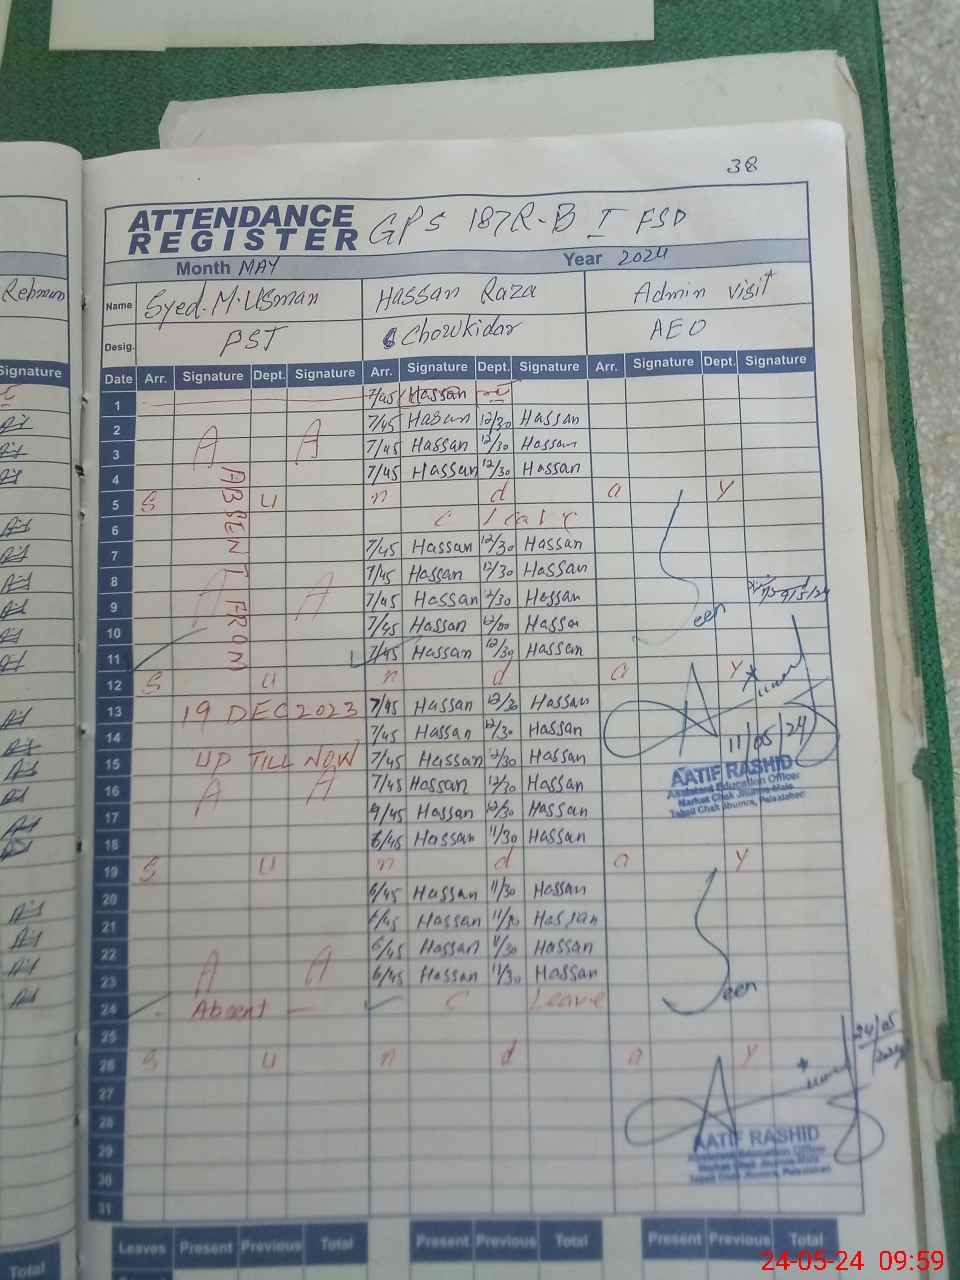 38
ATTENDANCE REGISTER GPS 187R-B I FSD
Month MAY Year 2024
Rehman
Name Syed.M.Usman Hassan Raza Admin visit
Desig. PST Chowkidar AEO
Signature Date Arr. Signature Dept. Signature Arr. Signature Dept. Signature Arr. Signature Dept. Signature
1 7/45 Hassan
2 7/45 Hassan 12/30 Hassan
3 A A 7/45 Hassan 12/30 Hassan
4 7/45 Hassan 12/30 Hassan
5 S u n d a y
6 C leave
7 7/45 Hassan 12/30 Hassan
8 7/45 Hassan 12/30 Hassan
9 A A 7/45 Hassan 12/30 Hassan
10 7/45 Hassan 12/00 Hassan
11 7/45 Hassan 12/30 Hassan
ABSENT FROM
Seen
12 S u n d a y
13 19 DEC 2023 7/45 Hassan 12/30 Hassan
14 7/45 Hassan 12/30 Hassan
11/05/24
15 UP TILL NOW 7/45 Hassan 12/30 Hassan
AATIF RASHID
Assistant Education Officer
16 A A 7/45 Hassan 12/30 Hassan
17 Hassan 12/30 Hassan
18 6/45 Hassan 11/30 Hassan
19 S u n d a y
20 6/45 Hassan 11/30 Hassan
21 6/45 Hassan 11/30 Hassan
22 6/45 Hassan 11/30 Hassan
23 A A 6/45 Hassan 11/30 Hassan
24 Absent C Leave
Seen
25
24/05
26 S u n d a y
27
28
29
AATIF RASHID
Assistant Education Officer
30
31
Total Leaves Present Previous Total Present Previous Total Present Previous Total
24-05-24 09:59